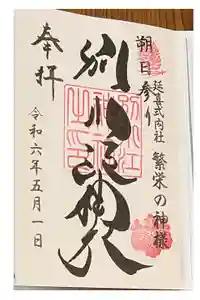 朔日参り
延喜式内社 繁栄の神様
別小江神社
奉拝
令和六年五月一日